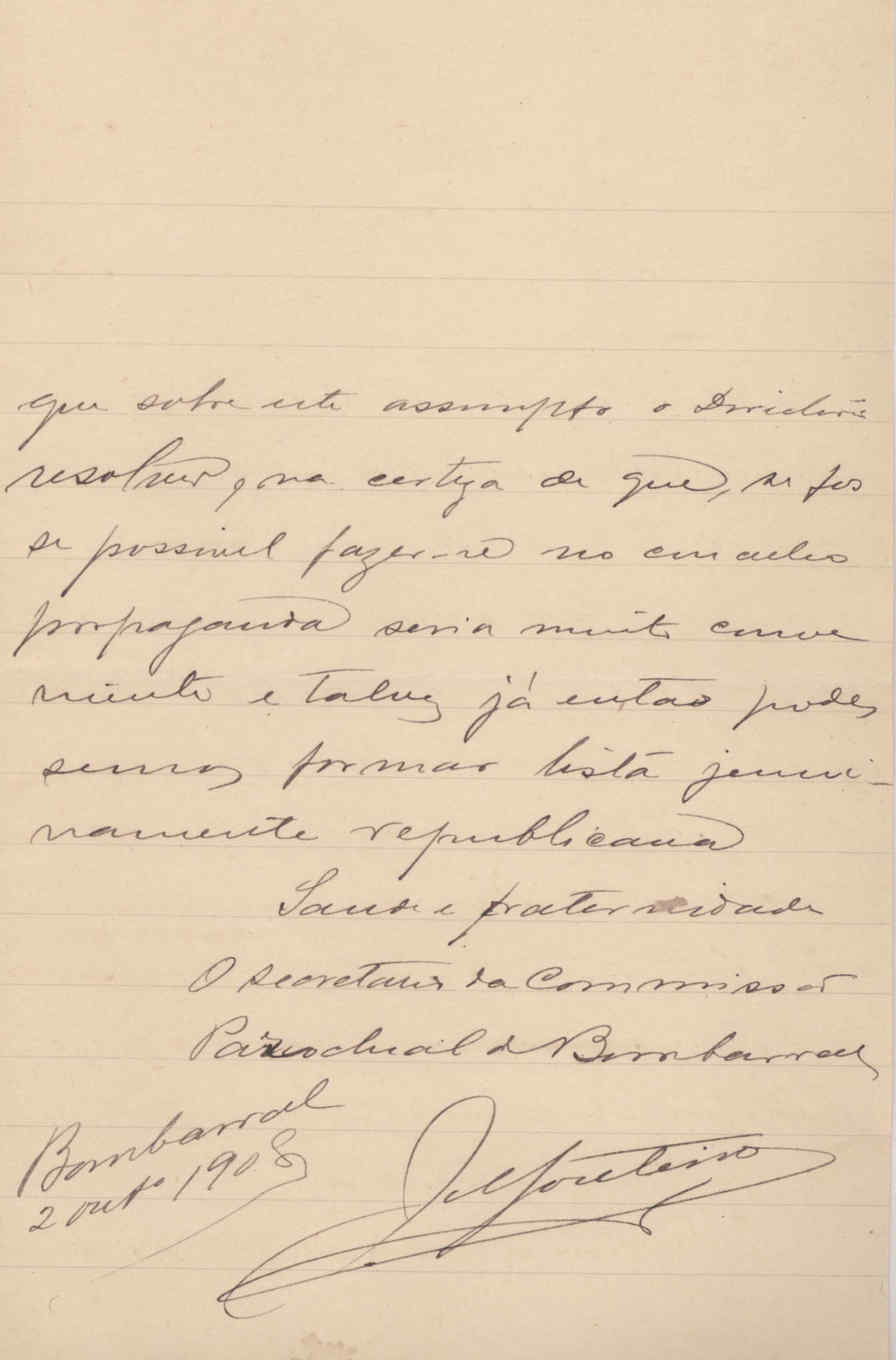 que sobre este assumpto o Directorio
resolver, na certeza de que, se fos
se possivel fazer-se no concelho
propaganda seria muito conve
niente e talvez já então podes
semos formar lista jenui-
namente republicana
Saude e fraternidade
O secretario da Commissão
Parochial de Bombarral
Bombarral
2 outº 1908